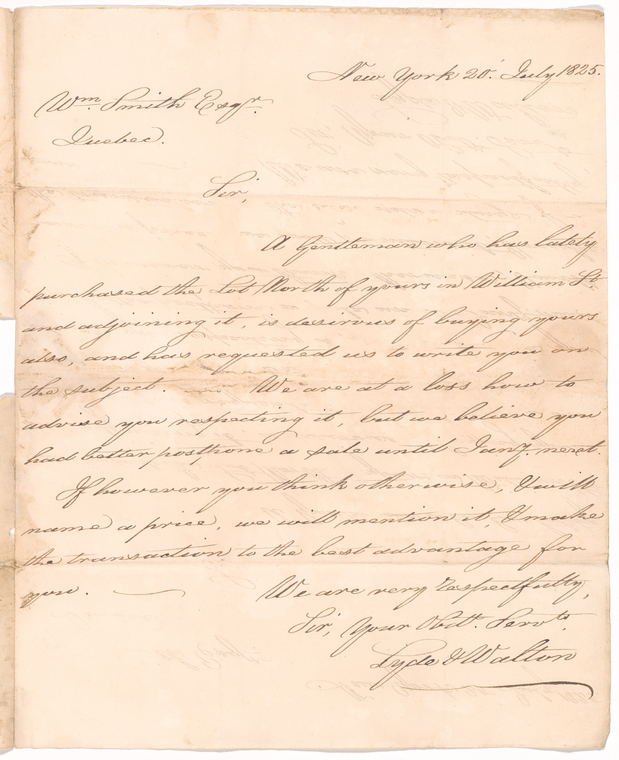 New York 20. July 1825.
Wm. Smith Esqr.
Quebec.
Sir,
A Gentleman who has lately
purchased the Lot North of yours in William St.
and adjoining it, is desirous of buying yours
also, and has requested us to write you on
the subject. We are at a loss how to
advise you respecting it, but we believe you
had better postpone a sale until Jany. next.
If however you think otherwise, & will
name a price, we will mention it, & make
the transaction to the best advantage for
you.
We are very respectfully,
Sir, Your Obdt. Servts.
Lyde & Walton